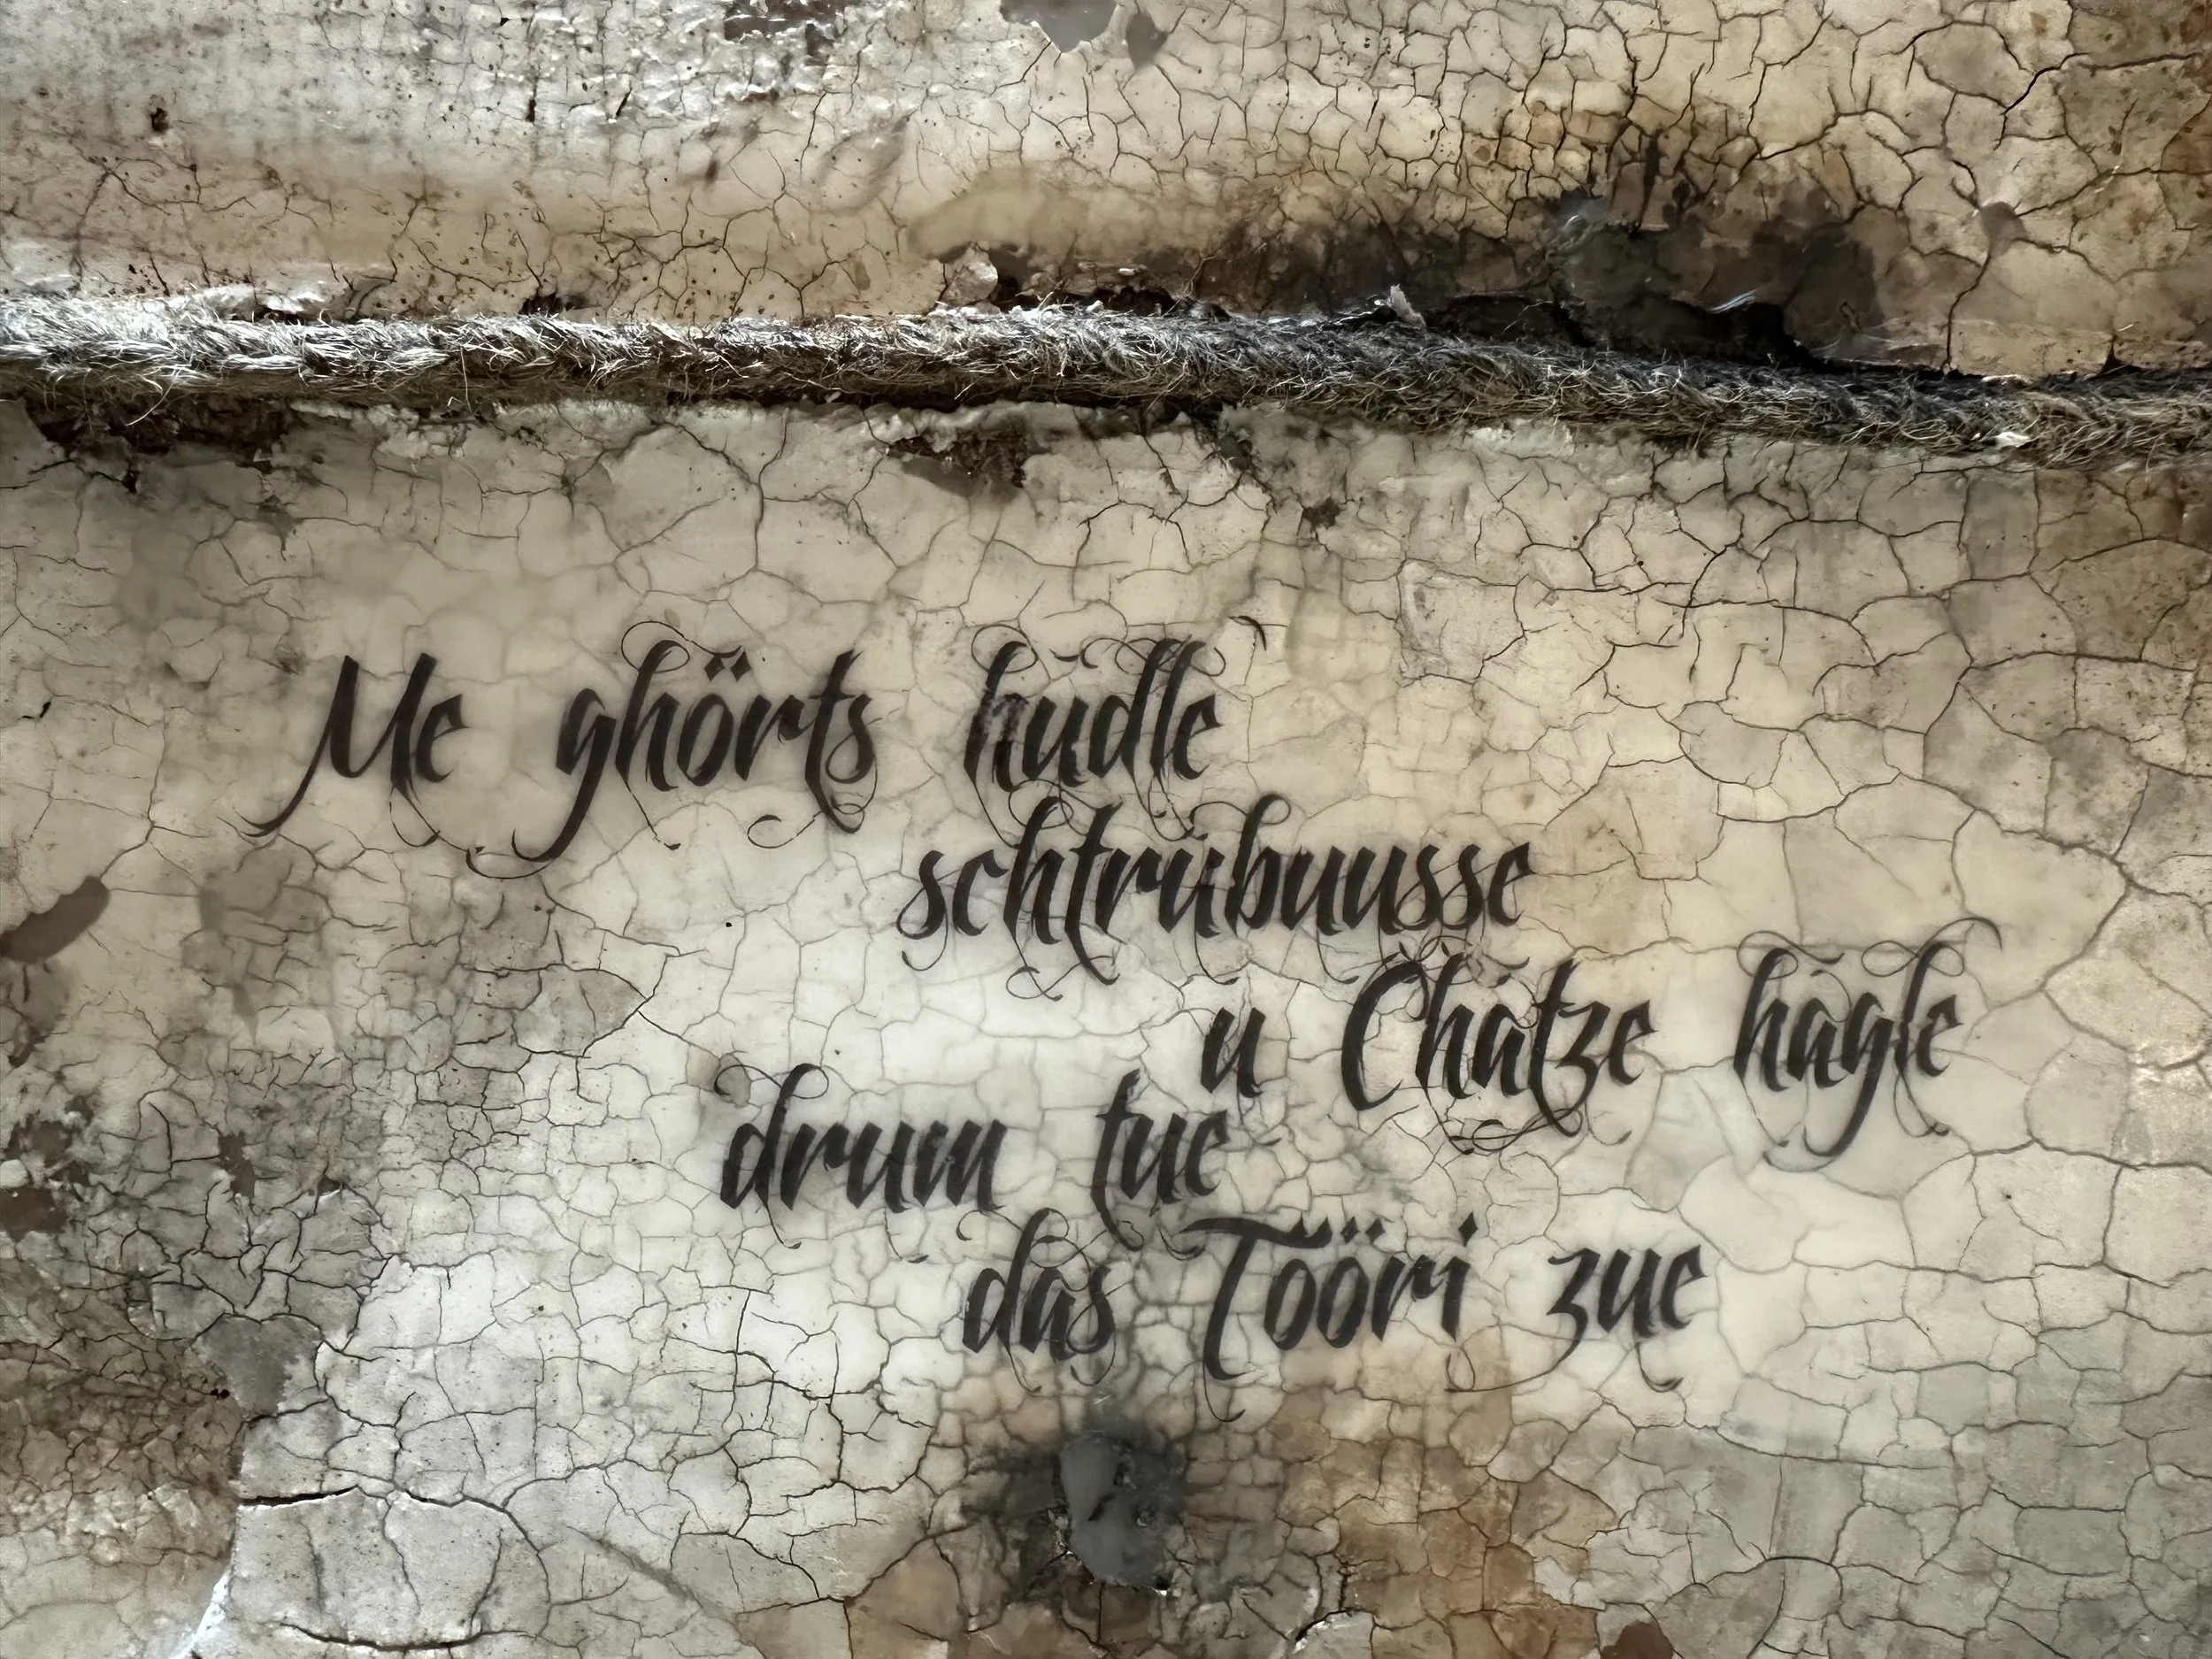 Me ghörts hudle
schtrubuusse
u Chatze hagle
drum tue
das Tööri zue